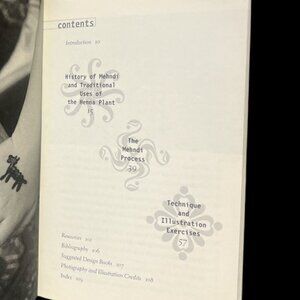 contents
Introduction 10
History of Mehndi
and Traditional
Uses of
the Henna Plant
15
The
Mehndi
Process
39
Technique
and
Illustration
Exercises
57
Resources 101
Bibliography 106
Suggested Design Books 107
Photography and Illustration Credits 108
Index 109